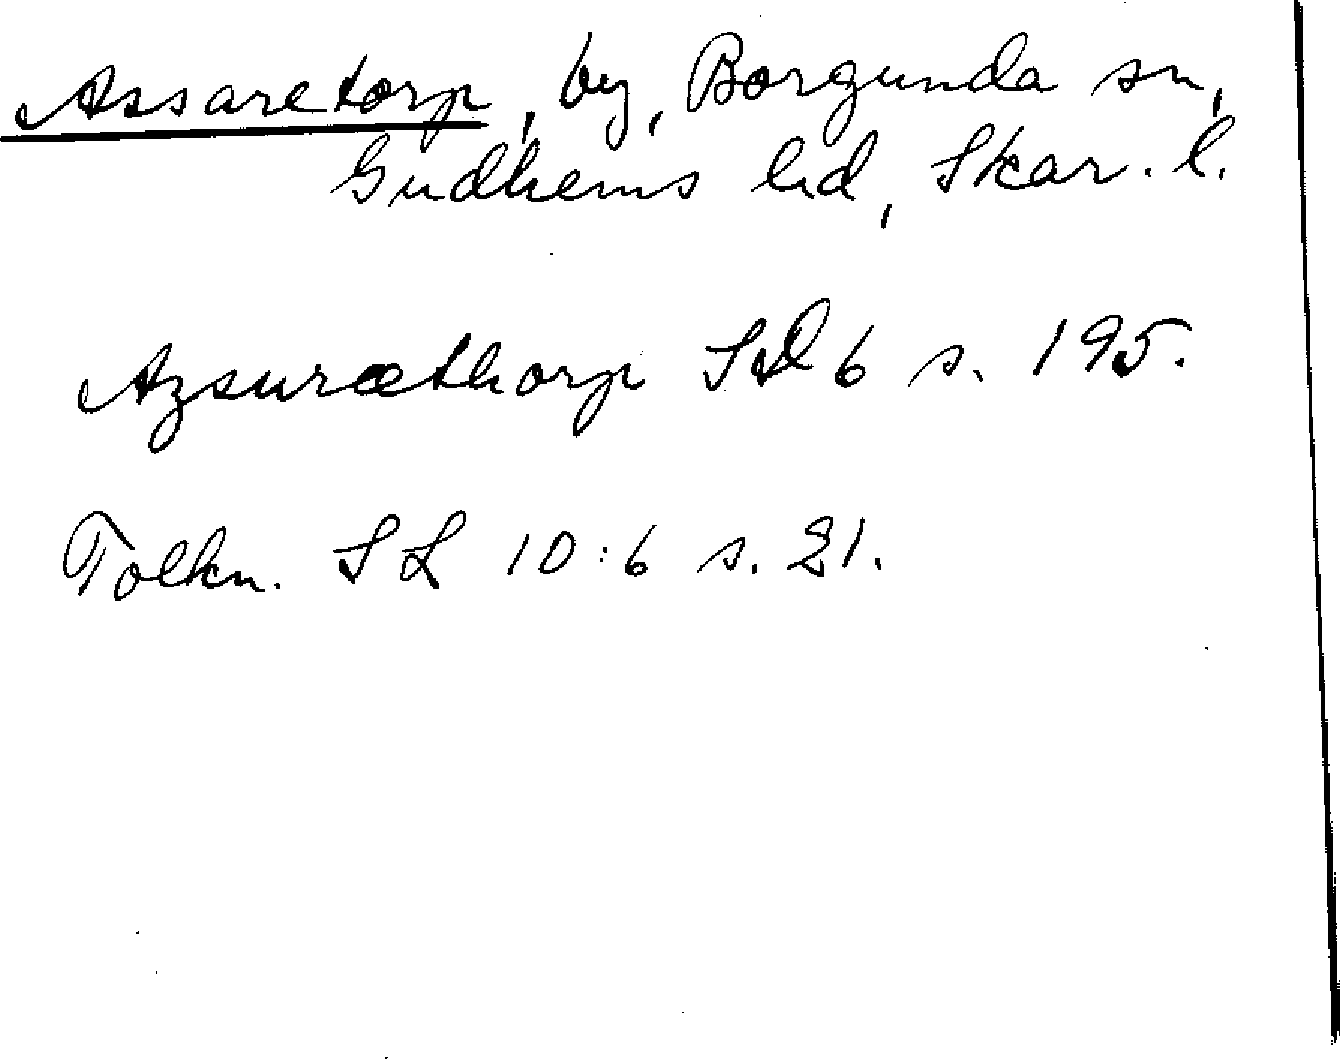 Assaretorp, by, Borgunda sn,
Gudhems hd, Skar. l.
Azsuræthorp SD 6 s. 195.
Tolkn. SL 10:6 s. 21.